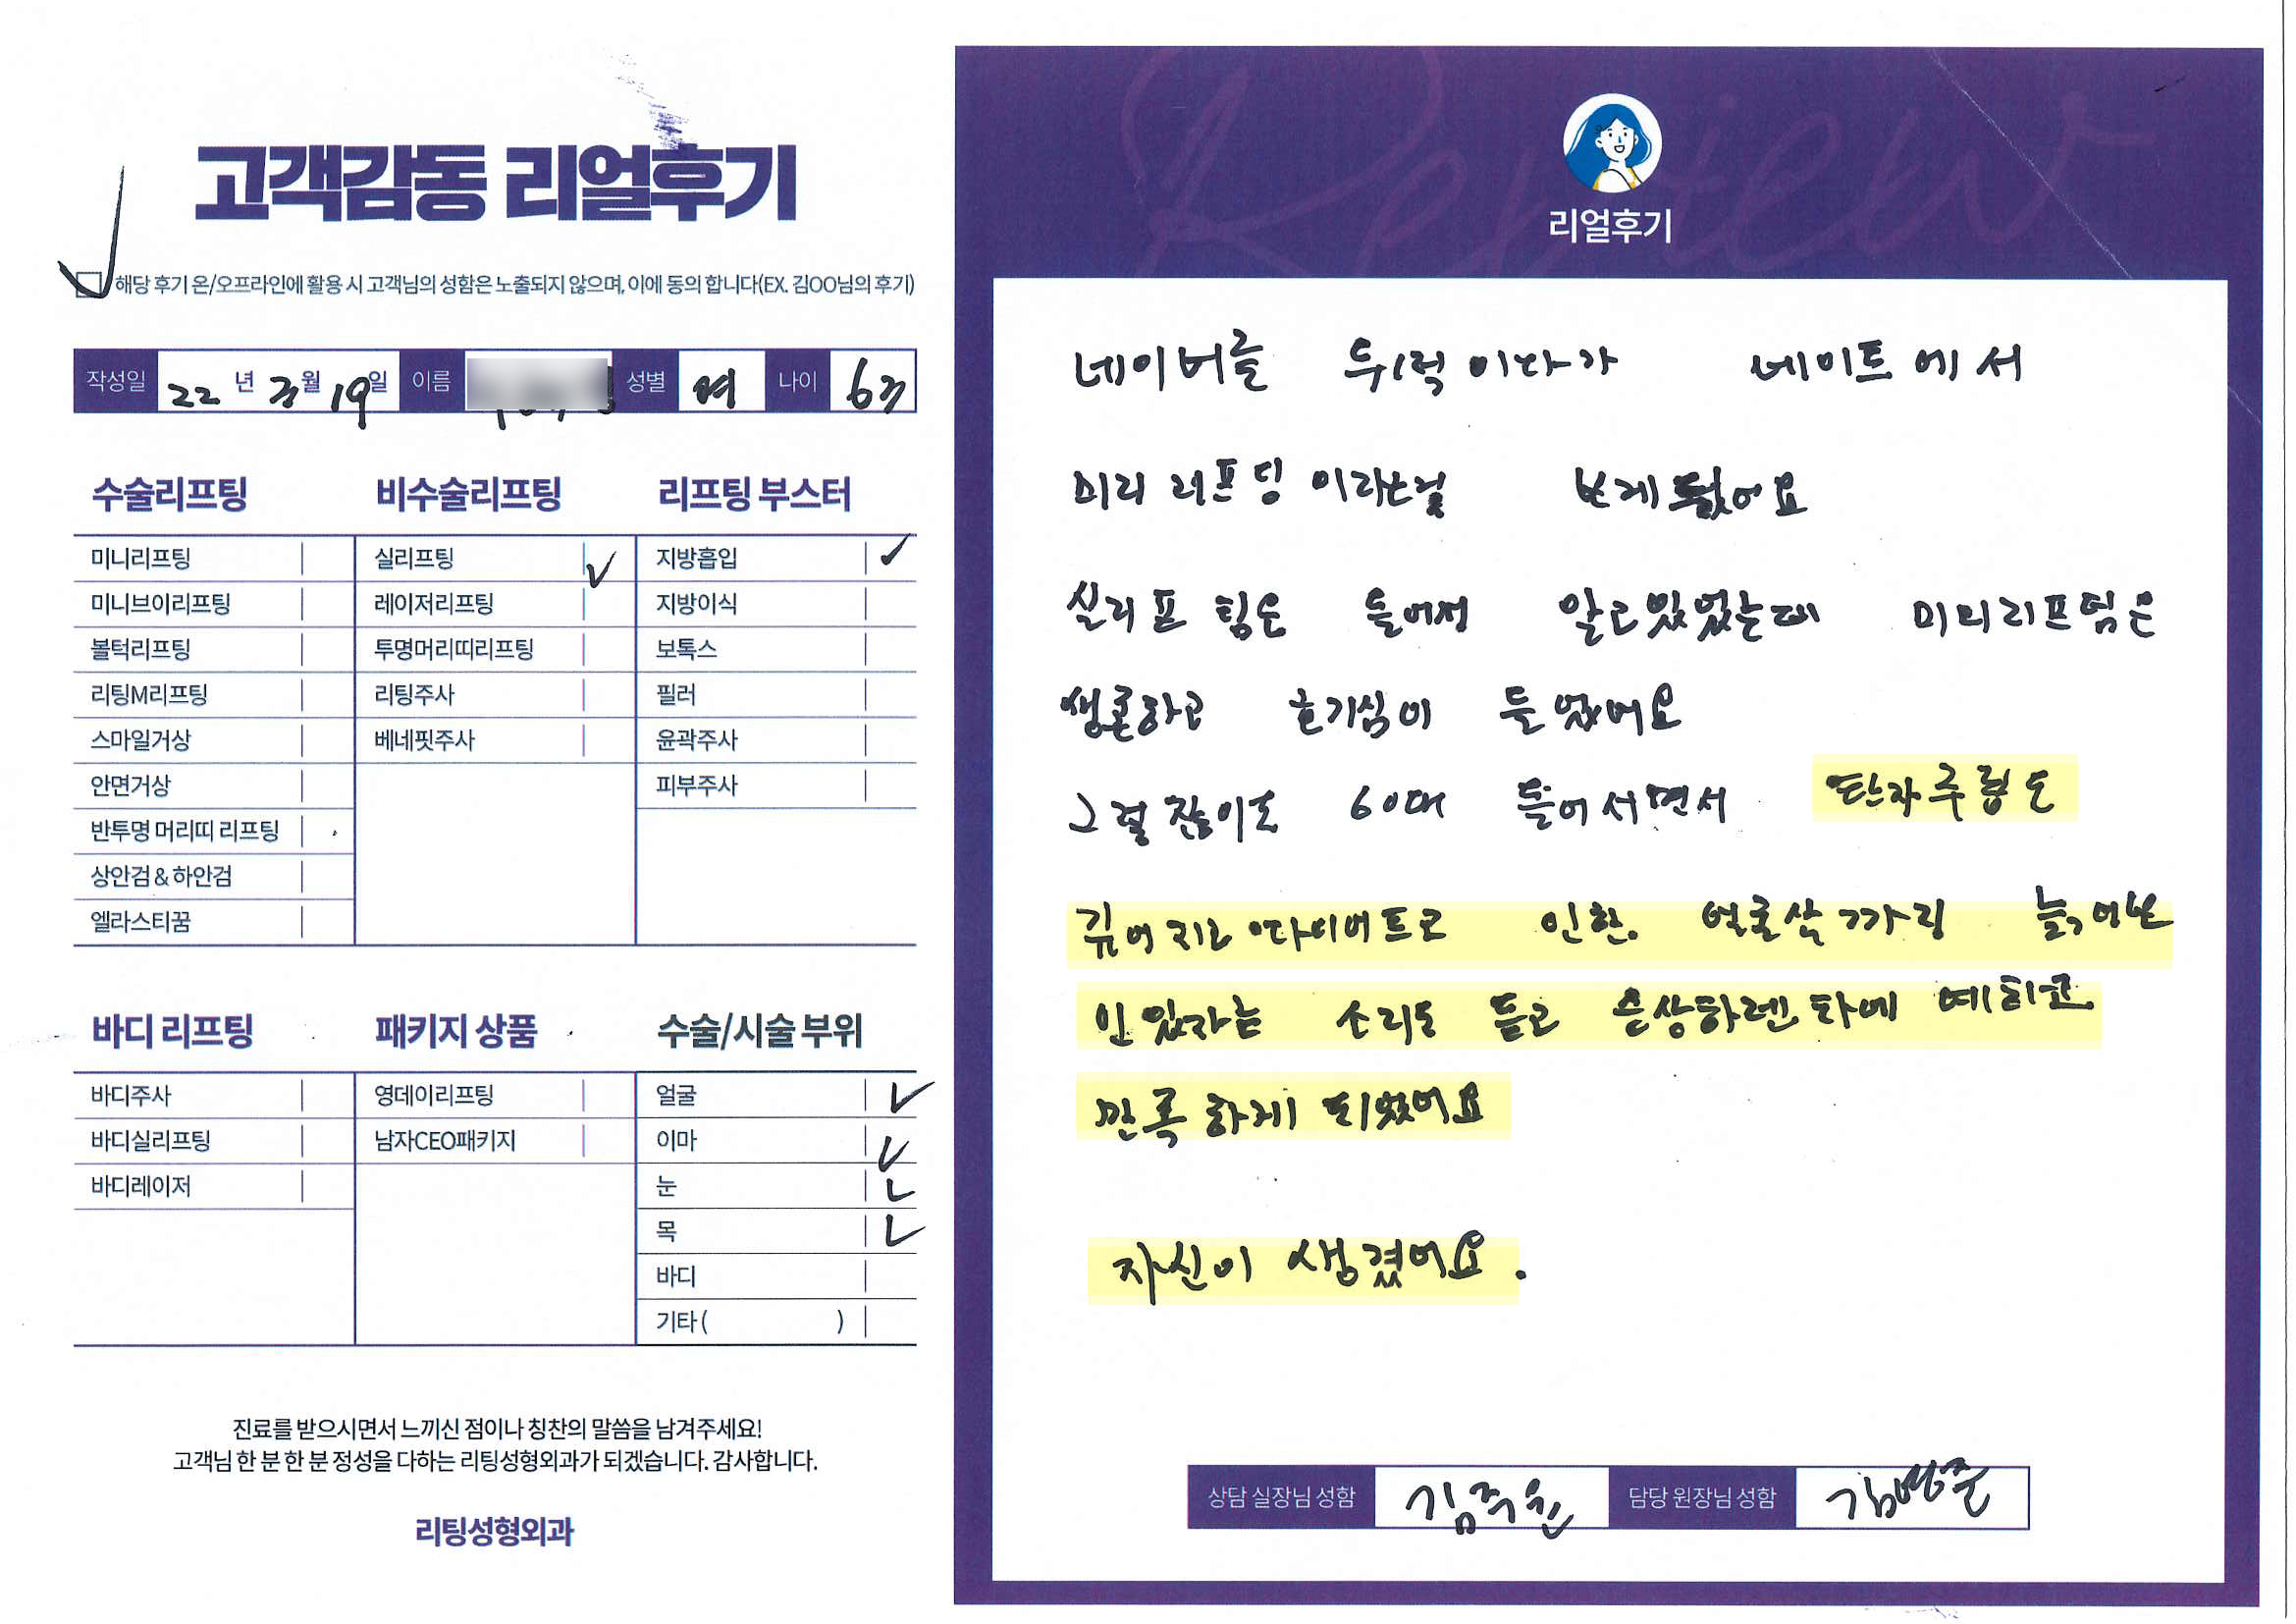 고객감동 리얼후기
해당 후기 온/오프라인에 활용 시 고객님의 성함은 노출되지 않으며, 이에 동의 합니다(EX. 김OO님의 후기)
작성일 22 년 3월 19일 이름 성별 여 나이 63
수술리프팅
미니리프팅
미니브이리프팅
볼턱리프팅
리팅M리프팅
스마일거상
안면거상
반투명 머리띠 리프팅
상안검 & 하안검
엘라스티꿈
비수술리프팅
실리프팅
레이저리프팅
투명머리띠리프팅
리팅주사
베네핏주사
리프팅 부스터
지방흡입
지방이식
보톡스
필러
윤곽주사
피부주사
바디 리프팅
바디주사
바디실리프팅
바디레이저
패키지 상품
영데이리프팅
남자CEO패키지
수술/시술 부위
얼굴
이마
눈
목
바디
기타 ( )
진료를 받으시면서 느끼신 점이나 칭찬의 말씀을 남겨주세요!
고객님 한 분 한 분 정성을 다하는 리팅성형외과가 되겠습니다. 감사합니다.
리팅성형외과
Review
리얼후기
네이버를 뒤적이다가 네이트에서
미리 리프팅이라는걸 보게됬어요
실리프팅은 들어서 알고있었는데 미니리프팅은
생론하고 호기심이 들었어요
그럴잖이도 60대 들어서면서 팔자주름도
깊어지고 다이어트로 인한. 얼굴살까지 늙어
인있다는 소리도 듣고 속상하던차에
만족하게 되었어요
자신이 생겼어요.
상담 실장님 성함 김주원 담당 원장님 성함 김병준